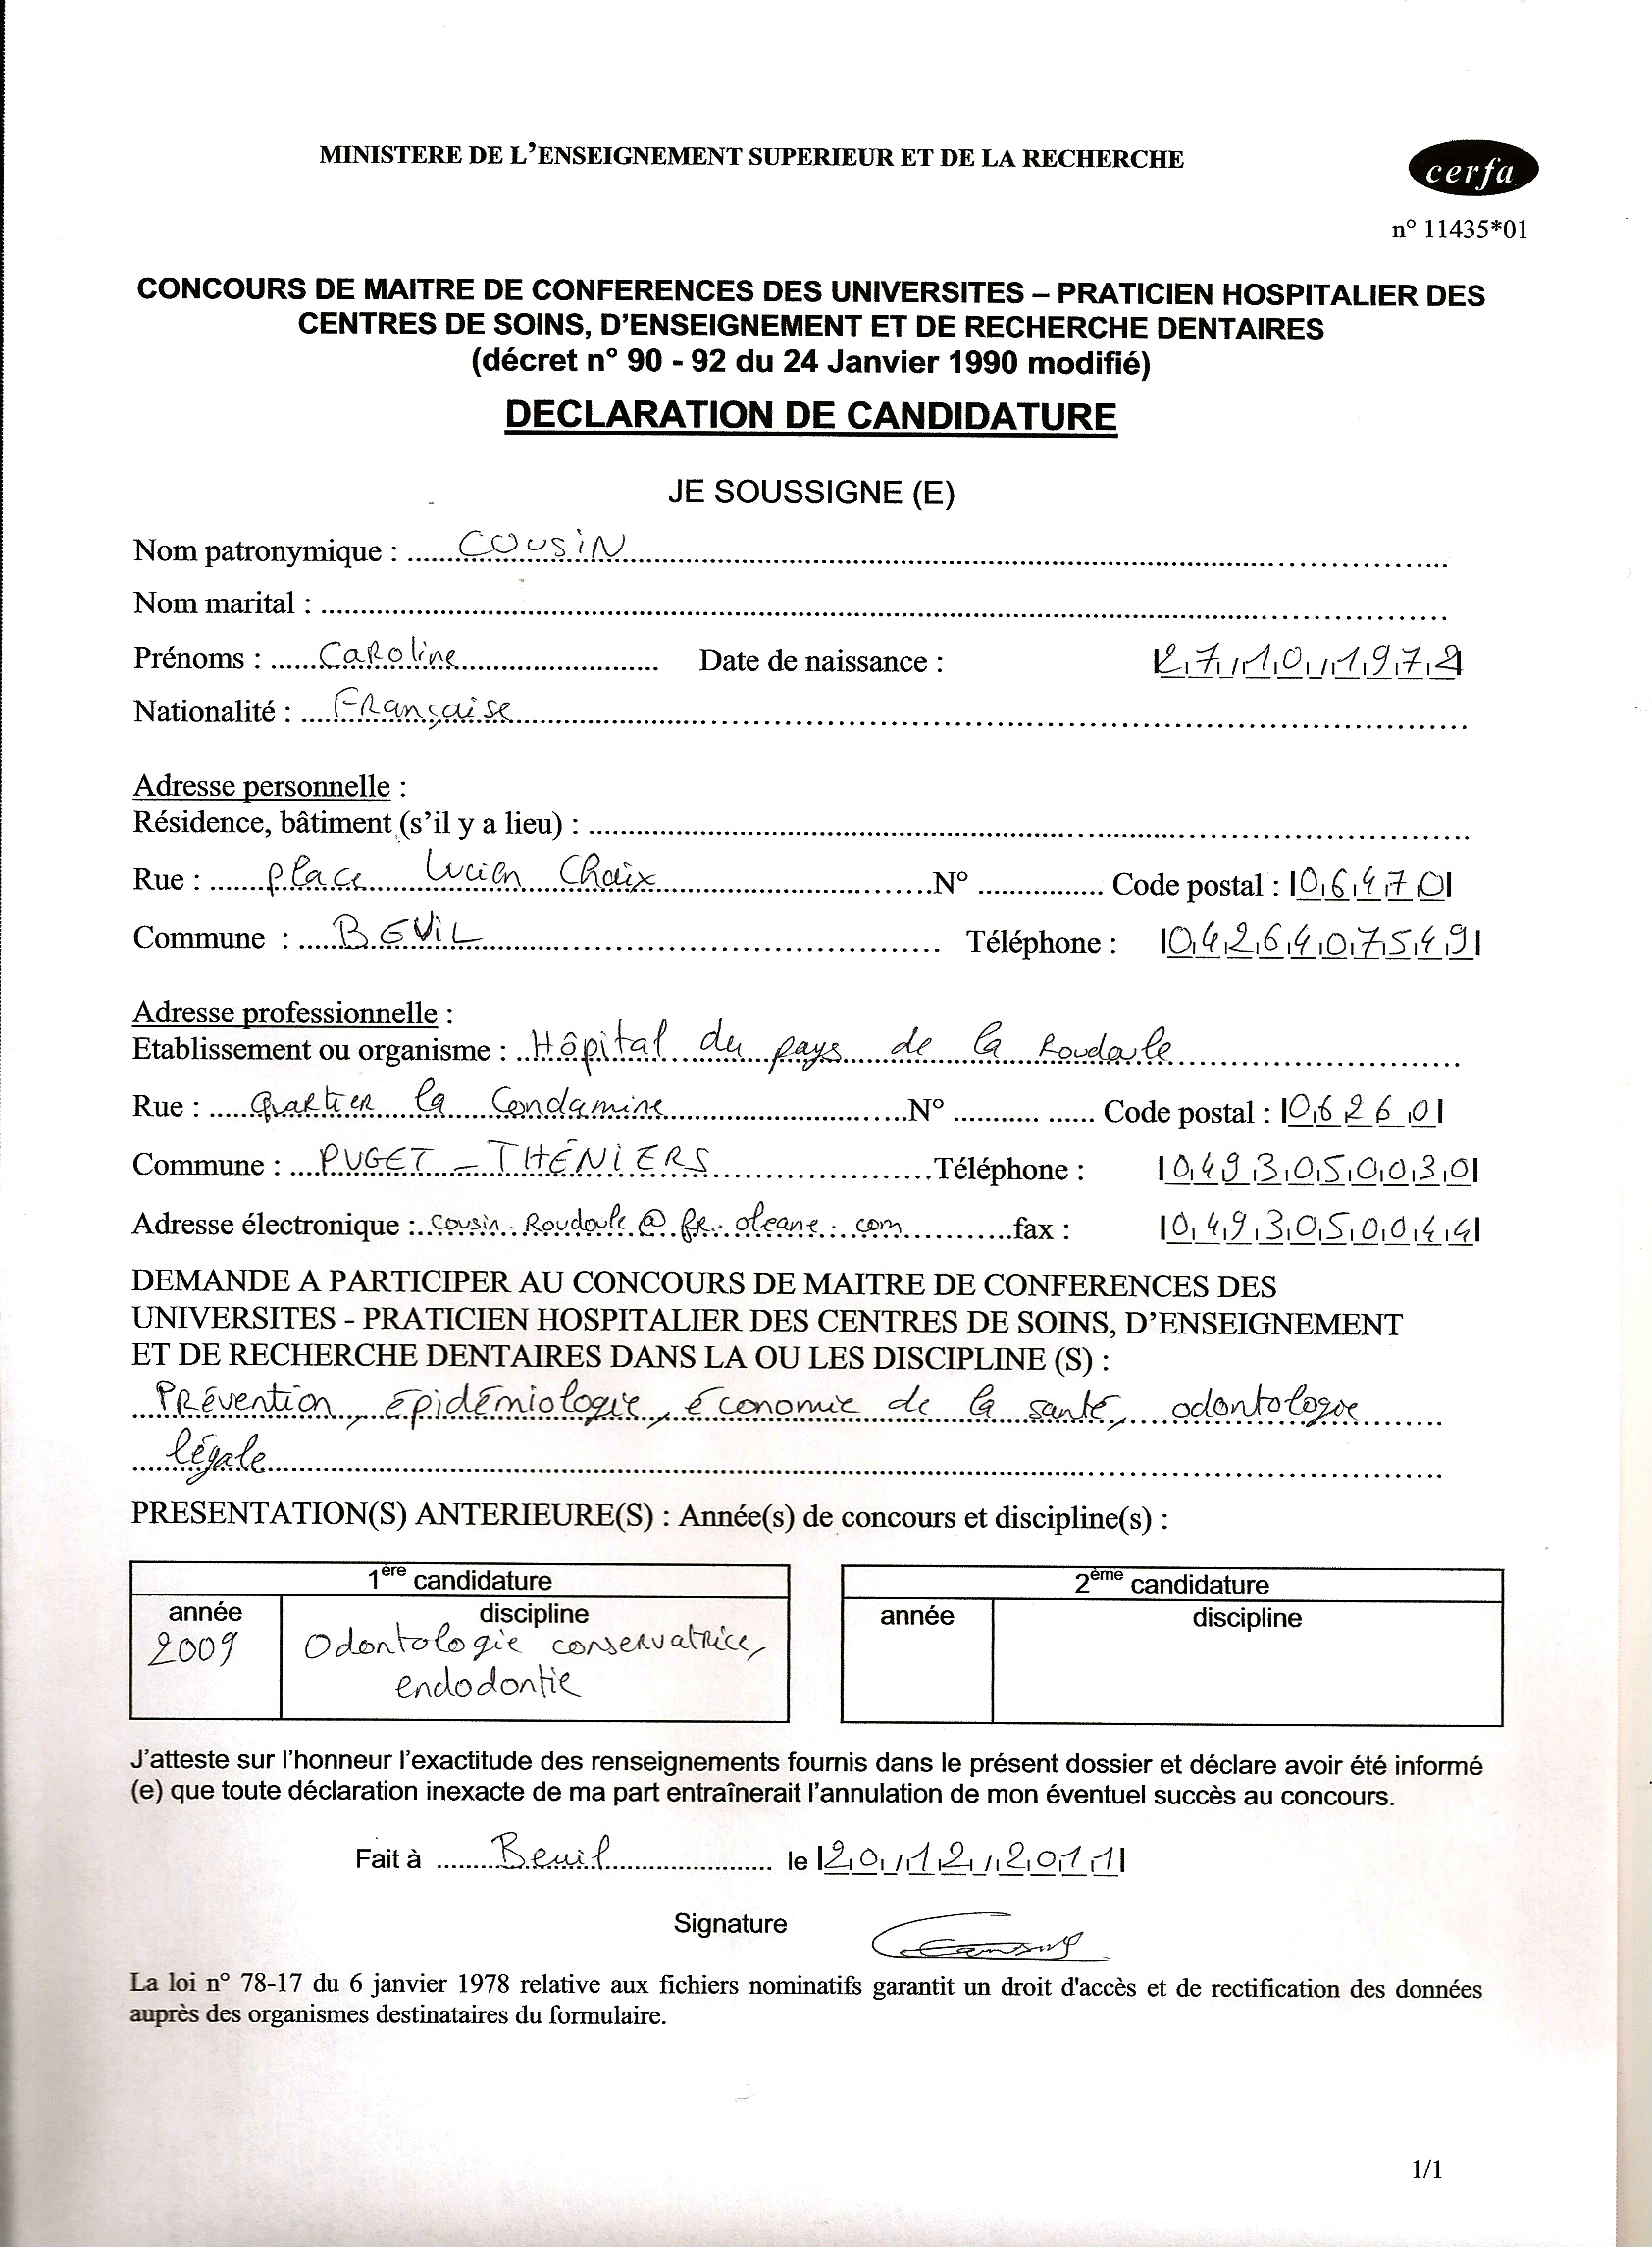 MINISTERE DE L'ENSEIGNEMENT SUPERIEUR ET DE LA RECHERCHE
cerfa
n° 11435*01
CONCOURS DE MAITRE DE CONFERENCES DES UNIVERSITES – PRATICIEN HOSPITALIER DES
CENTRES DE SOINS, D'ENSEIGNEMENT ET DE RECHERCHE DENTAIRES
(décret n° 90 - 92 du 24 Janvier 1990 modifié)
DECLARATION DE CANDIDATURE
JE SOUSSIGNE (E)
Nom patronymique : COUSIN
Nom marital :
Prénoms : Caroline Date de naissance : 27/10/1972
Nationalité : Française
Adresse personnelle :
Résidence, bâtiment (s'il y a lieu) :
Rue : place Lucien Chaix N° Code postal : 06470
Commune : BEUIL Téléphone : 0426407549
Adresse professionnelle :
Etablissement ou organisme : Hôpital du pays de la Roudoule
Rue : Quartier la Condamine N° Code postal : 06260
Commune : PUGET-THÉNIERS Téléphone : 0493050030
Adresse électronique : cousin.roudoule@fr.oleane.com fax : 0493050044
DEMANDE A PARTICIPER AU CONCOURS DE MAITRE DE CONFERENCES DES
UNIVERSITES - PRATICIEN HOSPITALIER DES CENTRES DE SOINS, D'ENSEIGNEMENT
ET DE RECHERCHE DENTAIRES DANS LA OU LES DISCIPLINE (S) :
Prévention, épidémiologie, économie de la santé, odontologie
légale
PRESENTATION(S) ANTERIEURE(S) : Année(s) de concours et discipline(s) :
1ère candidature 2ème candidature
année discipline année discipline
2009 Odontologie conservatrice,
endodontie
J'atteste sur l'honneur l'exactitude des renseignements fournis dans le présent dossier et déclare avoir été informé
(e) que toute déclaration inexacte de ma part entraînerait l'annulation de mon éventuel succès au concours.
Fait à Beuil le 20/12/2011
Signature
La loi n° 78-17 du 6 janvier 1978 relative aux fichiers nominatifs garantit un droit d'accès et de rectification des données
auprès des organismes destinataires du formulaire.
1/1